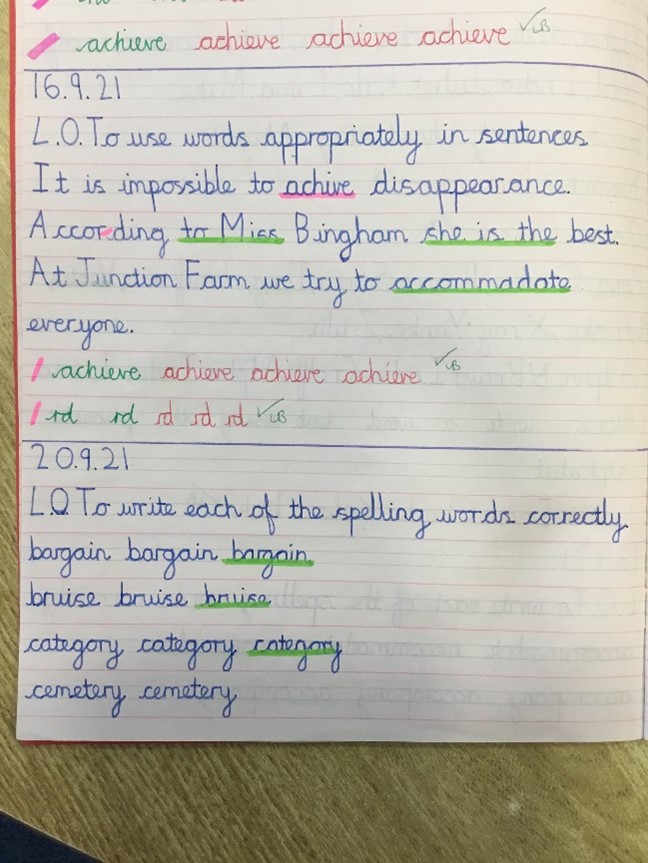 achieve achieve achieve achieve ✓LB
16.9.21
L.O. To use words appropriately in sentences
It is impossible to achive disappearance.
According to Miss Bingham she is the best.
At Junction Farm we try to accommadate
everyone.
achieve achieve achieve achieve ✓LB
rd rd rd rd rd ✓LB
20.9.21
L.O To write each of the spelling words correctly.
bargain bargain bargain
bruise bruise bruise
category category category
cemetery cemetery